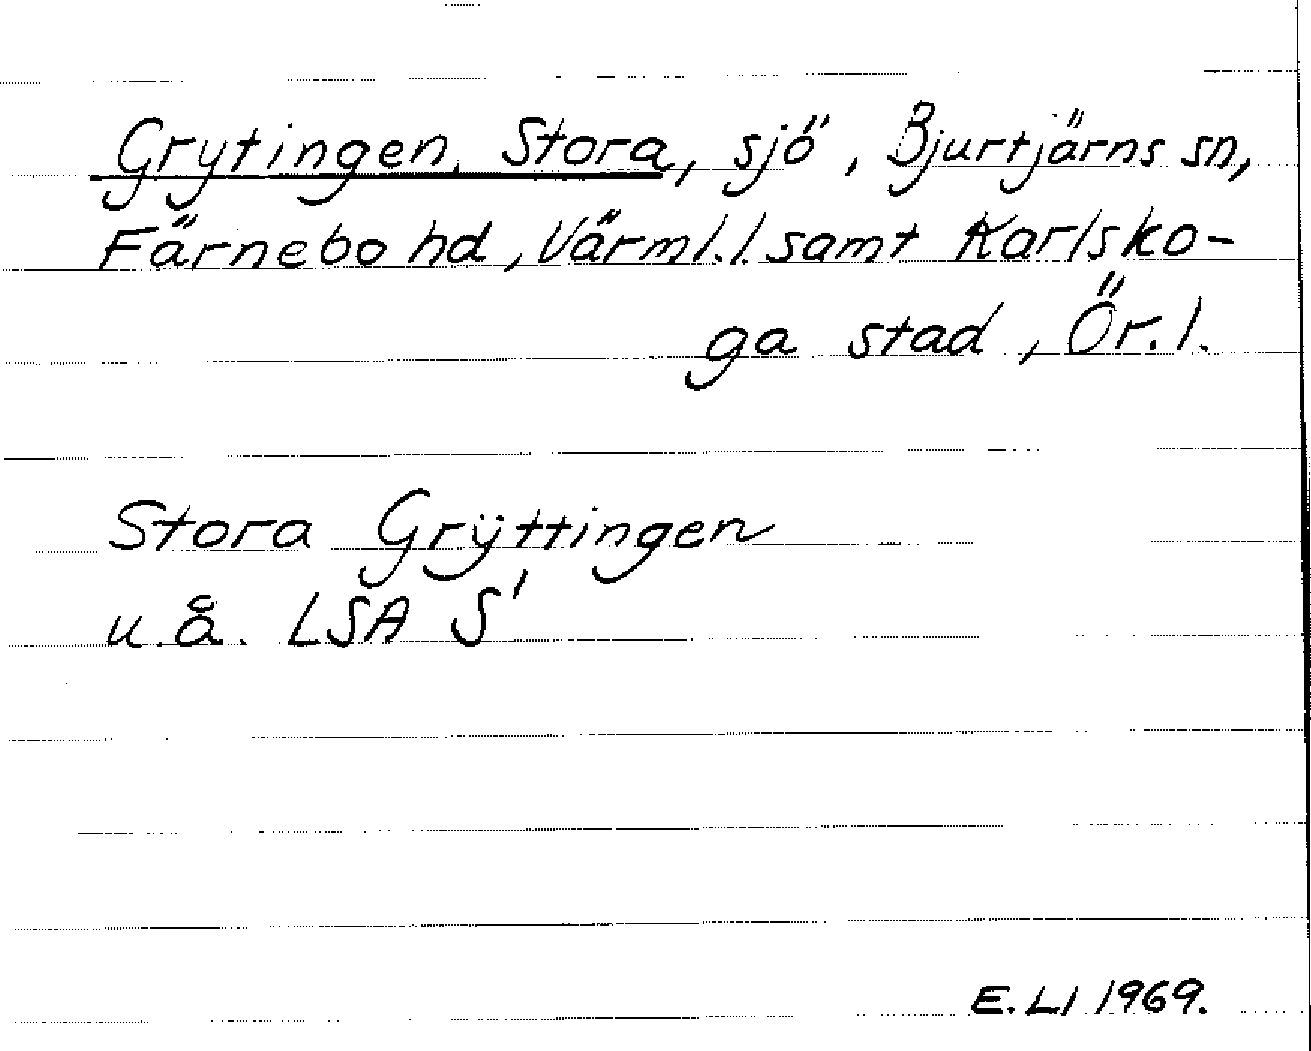 Grytingen, Stora, sjö, Bjurtjärns sn,
Färnebo hd, Värml.l. samt Karlsko-
ga stad, Ör.l.
Stora Grÿttingen
u.å. LSA S'
E.LI 1969.